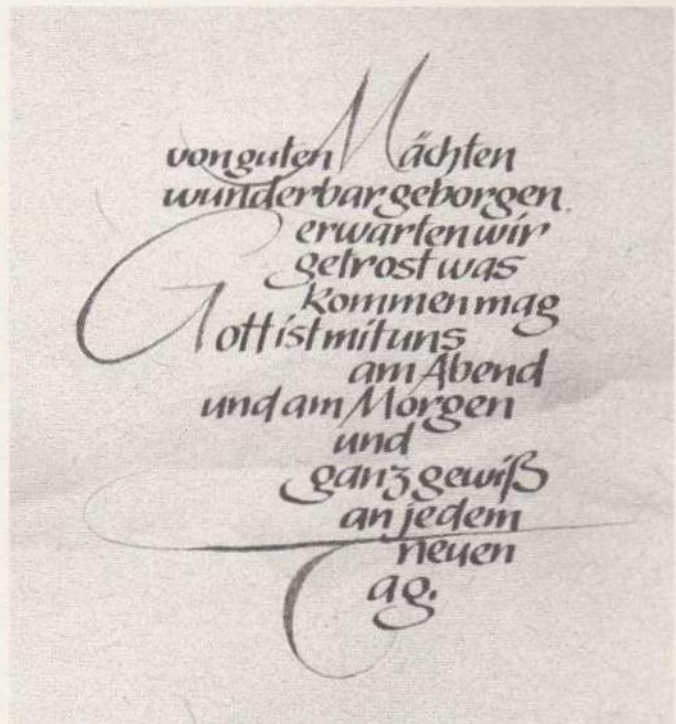 von guten Mächten
wunderbar geborgen.
erwarten wir
getrost was
kommen mag
Gott ist mit uns
am Abend
und am Morgen
und
ganz gewiß
an jedem
neuen
Tag.